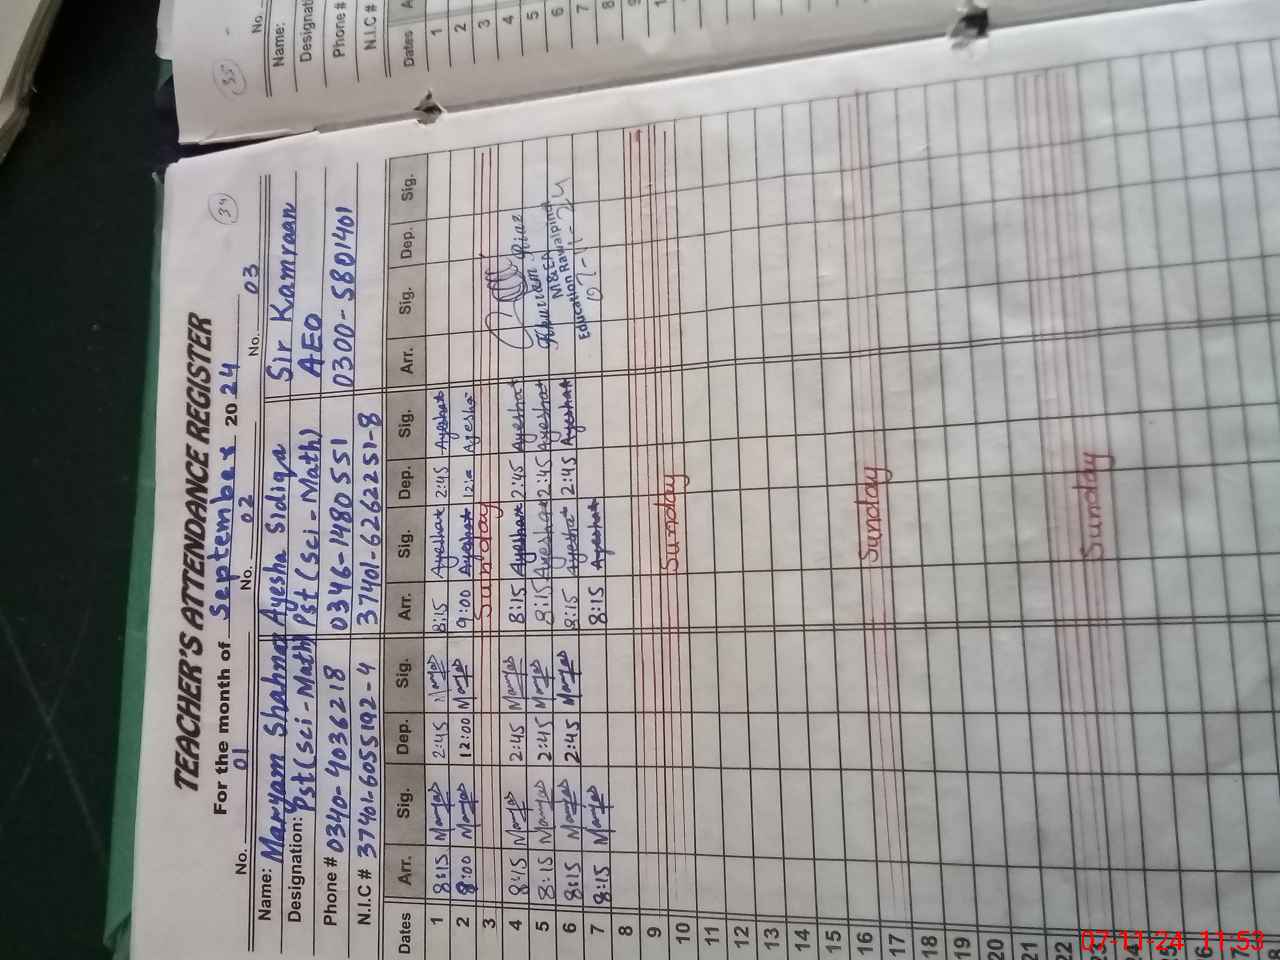 TEACHER'S ATTENDANCE REGISTER
34
For the month of September 20 24
No. 01 No. 02 No. 03
Name: Maryam Shahnaz Ayesha Sidiqa Sir Kamraan
Designation: Pst(Sci-Math) Pst(Sci-Math) AEO
Phone # 0340-4036218 0346-1480551 0300-5801401
N.I.C # 37401-6055192-4 37401-6262251-8
Dates Arr. Sig. Dep. Sig. Arr. Sig. Dep. Sig. Arr. Sig. Dep. Sig.
1 8:15 2:45 8:15 Ayesha 2:45 Ayesha
2 8:00 12:00 9:00 Ayesha Ayesha
3 Sunday
4 8:15 2:45 8:15 Ayesha 2:45 Ayesha
5 8:15 2:45 8:15 Ayesha 2:45 Ayesha
6 8:15 2:45 8:15 Ayesha 2:45 Ayesha
7 8:15 8:15 Ayesha
Khurram Riaz
M&EA
Education Rawalpindi
8
9
10 Sunday
11
12
13
14
15
16 Sunday
17
18
19
20
21
22
23 Sunday
24
25
26
27
35
No.
Name:
Designati
Phone #
N.I.C #
Dates A
1
2
3
4
5
6
7
8
9
07-11-24 11:53